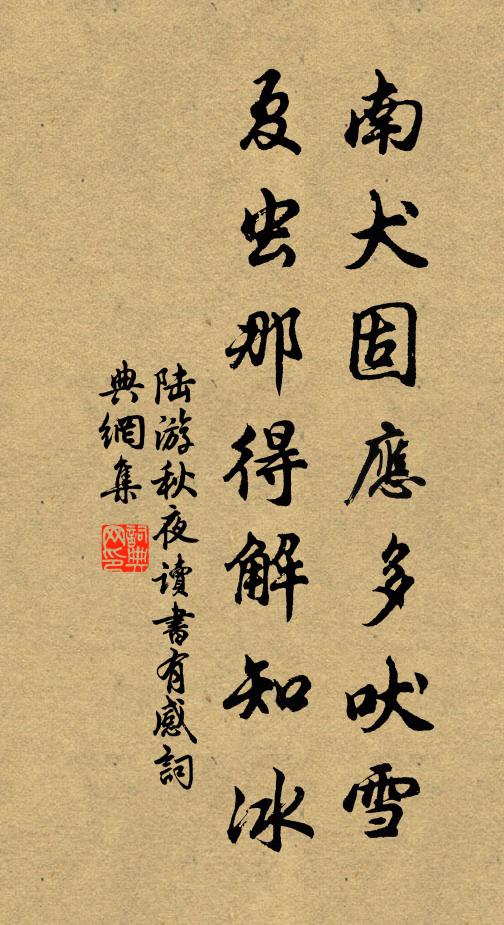 南犬固應多吠雪
夏虫那得解知冰
陆游秋夜讀書有感詞
典網集
詞典网印